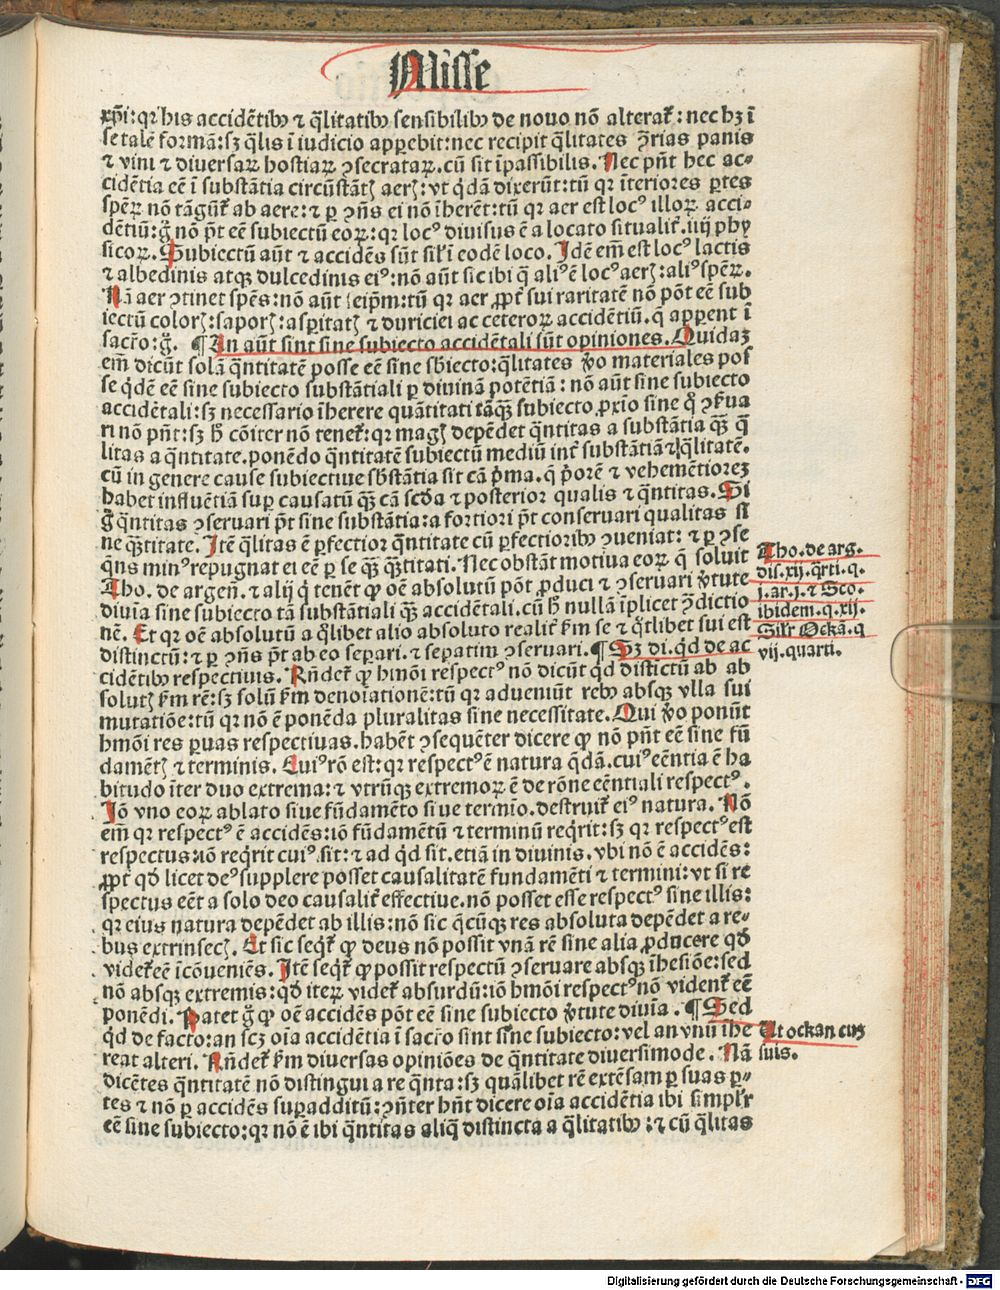 Misse
xp̄i:qr his accidētibꝰ ⁊ q̄litatibꝰ sensibilibꝰ de nouo nō alterat̄: nec hꝫ ī
se talē formā:sꝫ q̄lis ī iudicio apparebit:nec recipit q̄litates ꝯ̄rias panis
⁊ vini ⁊ diuersaꝝ hostiaꝝ ꝯsecrataꝝ.cū sit īpassibilis. Nec pn̄t hec ac-
cidētia eē ī substātia circūstātꝭ aerꝭ: vt q̇dā dixerūt: tū qꝛ īteriores ꝑtes
speꝝ nō tāgūt̄ ab aere: ⁊ ꝑ ꝯn̄s ei nō īherēt: tū qꝛ aer est locꝰ illoꝝ acci-
dētiū: g̊ nō pōt eē subiectū eoꝝ: qꝛ locꝰ diuisus ē a locato situalit̄. iiij phy
sicoꝝ. Subiectū aūt ⁊ accidēs sūt sil̄ ī eodē loco. Idē em̄ est locꝰ lactis
⁊ albedinis atqꝫ dulcedinis eiꝰ: nō aūt sic ibi q̄ aliꝰ ē locꝰ aerꝭ: aliꝰ speꝝ.
Nā aer ꝯtinet spēs: nō aūt seip̄m: tū qꝛ aer ꝓpt̄ sui raritatē nō pōt eē sub
iectū colorꝭ: saporꝭ: asꝑitatꝭ ⁊ duriciei ac ceteroꝝ accidētiū. q̄ apparent ī
sacr̄o: g̊. ¶ An aūt sint sine subiecto accidētali sūt opiniones. Quidaꝫ
em̄ dicūt solā q̄ntitatē posse eē sine sb̄iecto: q̄litates ꝟo materiales pos
se q̇dē eē sine subiecto substātiali ꝑ diuinā potētiā: nō aūt sine subiecto
accidētali: sꝫ necessario īherere quātitati tāqꝫ subiecto ꝓxīo sine q̊ ꝯẜua
ri nō pn̄t: sꝫ h̄ cōiter nō tenet̄: qꝛ magꝭ depēdet q̄ntitas a substātia qꝫ q̄
litas a q̄ntitate. ponēdo q̄ntitatē subiectū mediū int̄ substātiā ⁊ q̄litatē.
cū in genere cause subiectiue sb̄stātia sit cā p̄ma. q̄ p̄orē ⁊ vehemētiorez
habet influētiā suꝑ causatū qꝫ cā scd̄a ⁊ posterior qualis ⁊ q̄ntitas. Si
g̊ q̄ntitas ꝯseruari pōt sine substātia: a fortiori pōt conseruari qualitas si
ne q̄ntitate. Itē q̄litas ē ꝑfectior q̄ntitate cū ꝑfectioribꝰ ꝯueniat: ⁊ ꝑ ꝯse
qn̄s minꝰ repugnat ei eē ꝑ se qꝫ q̄ntitati. Nec obstāt motiua eoꝝ q̄ soluit
Tho. de argen̄. ⁊ alij q̇ tenēt ꝙ oē absolutū pōt ꝓduci ⁊ ꝯseruari ꝟtute
diuīa sine subiecto tā substātiali qꝫ accidētali. cū h̄ nullā īplicet ꝯ̄dictio
nē. Et qꝛ oē absolutū a q̄libet alio absoluto realit̄ ẜm se ⁊ q̊dlibet sui est
distinctū: ⁊ ꝑ ꝯn̄s pōt ab eo seꝑari. ⁊ seꝑatim ꝯseruari. ¶ Sꝫ di. q̇d de ac
cidētibꝰ respectiuis. Rn̄det̄ ꝙ hmōi respectꝰ nō dicūt q̇d distīctū ab ab
solutꝭ ẜm rē: sꝫ solū ẜm denoīationē: tū qꝛ adueniūt rebꝰ absqꝫ vlla sui
mutatiōe: tū qꝛ nō ē ponēda pluralitas sine necessitate. Qui ꝟo ponūt
hmōi res paruas respectiuas. habēt ꝯsequēter dicere ꝙ nō pn̄t eē sine fū
damētꝭ ⁊ terminis. Cuiꝰ rō est: qꝛ respectꝰ ē natura q̇dā. cuiꝰ eēntia ē ha
bitudo īter duo extrema: ⁊ vtrūqꝫ extremoꝝ ē de rōne eēntiali respectꝰ.
Iō vno eoꝝ ablato siue fūdamēto siue termīo. destruit̄ eiꝰ natura. Nō
em̄ qꝛ respectꝰ ē accidēs: iō fūdamētū ⁊ terminū req̇rit: sꝫ qꝛ respectꝰ est
respectus: iō req̇rit cuiꝰ sit: ⁊ ad q̇d sit. etiā in diuinis. vbi nō ē accidēs:
ꝓpt̄ qd̄ licet deꝰ supplere posset causalitatē fundamēti ⁊ termini: vt si re
spectus eēt a solo deo causalit̄ effectiue. nō posset esse respectꝰ sine illis:
qꝛ eius natura depēdet ab illis: nō sic q̄cūqꝫ res absoluta depēdet a re-
bus extrinsecꝭ. Et sic seq̇t̄ ꝙ deus nō possit vnā rē sine alia ꝓducere qd̄
videt̄ eē īcōueniēs. Itē seq̇t̄ ꝙ possit respectū ꝯseruare absqꝫ īhesiōe: sed
nō absqꝫ extremis: qd̄ iteꝝ videt̄ absurdū: iō hmōi respectꝰ nō vident̄ eē
ponēdi. Patet g̊ ꝙ oē accidēs pōt eē sine subiecto ꝟtute diuīa. ¶ Sed
q̇d de facto: an scꝫ oīa accidētia ī sacr̄o sint sine subiecto: vel an vnū īhe
reat alteri. Rn̄det̄ ẜm diuersas opiniōes de q̄ntitate diuersimode. Nā
dicētes q̄ntitatē nō distingui a re q̄nta: sꝫ quālibet rē extēsam ꝑ suas ꝑ-
tes ⁊ nō ꝑ accidēs suꝑadditū: ꝯn̄ter hn̄t dicere oīa accidētia ibi simpl̄r
eē sine subiecto: qꝛ nō ē ibi q̄ntitas aliq̄ distincta a q̄litatibꝰ: ⁊ cū q̄litas
Tho. de arg.
dis. xij. q̄rti. q.
j. ar. j. ⁊ Sco.
ibidem. q. xij.
Silr Ockā. q
vij. quarti.
Ut ockan cuꝫ
suis.
Digitalisierung gefördert durch die Deutsche Forschungsgemeinschaft - DFG